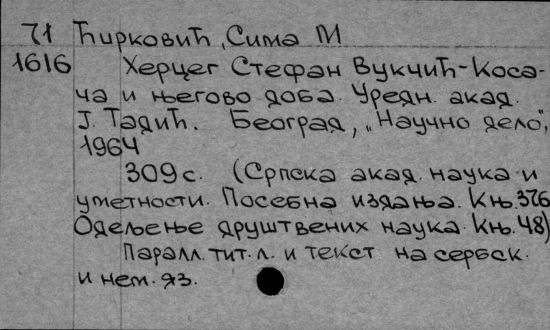 71 Ћирковић, Сима М
1616 Херцег Стефан Вукчић-Коса-
ча и његово доба. Уредн. акад.
Ј. Тадић. Београд, „Научно дело",
1964
309 с. (Српска акад. наука и
уметности. Посебна издања. Књ. 376
Одељење друштвених наука. Књ. 48)
Паралл. тит. л. и текст на сербск.
и нем. яз.